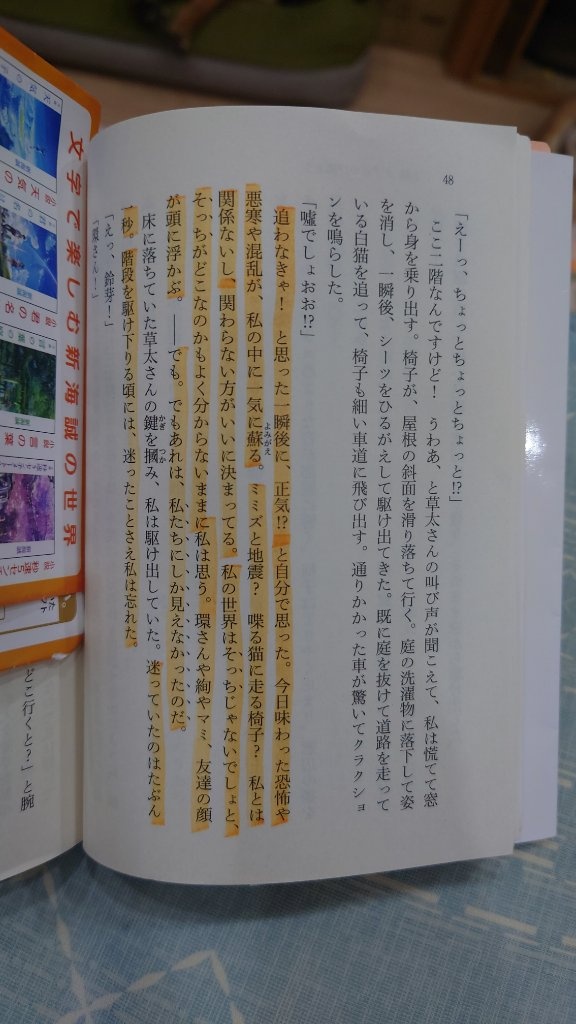 48
「えーっ、ちょっとちょっとちょっと!?」
ここ二階なんですけど！　うわあ、と草太さんの叫び声が聞こえて、私は慌てて窓
から身を乗り出す。椅子が、屋根の斜面を滑り落ちて行く。庭の洗濯物に落下して姿
を消し、一瞬後、シーツをひるがえして駆け出てきた。既に庭を抜けて道路を走って
いる白猫を追って、椅子も細い車道に飛び出す。通りかかった車が驚いてクラクショ
ンを鳴らした。
「嘘でしょおお!?」
追わなきゃ！　と思った一瞬後に、正気!?　と自分で思った。今日味わった恐怖や
悪寒や混乱が、私の中に一気に蘇る。ミミズと地震？　喋る猫に走る椅子？　私とは
よみがえ
関係ないし、関わらない方がいいに決まってる。私の世界はそっちじゃないでしょと、
そっちがどこなのかもよく分からないままに私は思う。環さんや絢やマミ、友達の顔
が頭に浮かぶ。――でも。でもあれは、私たちにしか見えなかったのだ。
床に落ちていた草太さんの鍵を摑み、私は駆け出していた。迷っていたのはたぶん
かぎ
つか
一秒。階段を駆け下りる頃には、迷ったことさえ私は忘れた。
「えっ、鈴芽！」
「環さん！」
文字で楽しむ新海誠の世界
小説 天気の
小説 君の名
小説 言の葉
小説 秒速5センチ
どこ行くと？」と腕